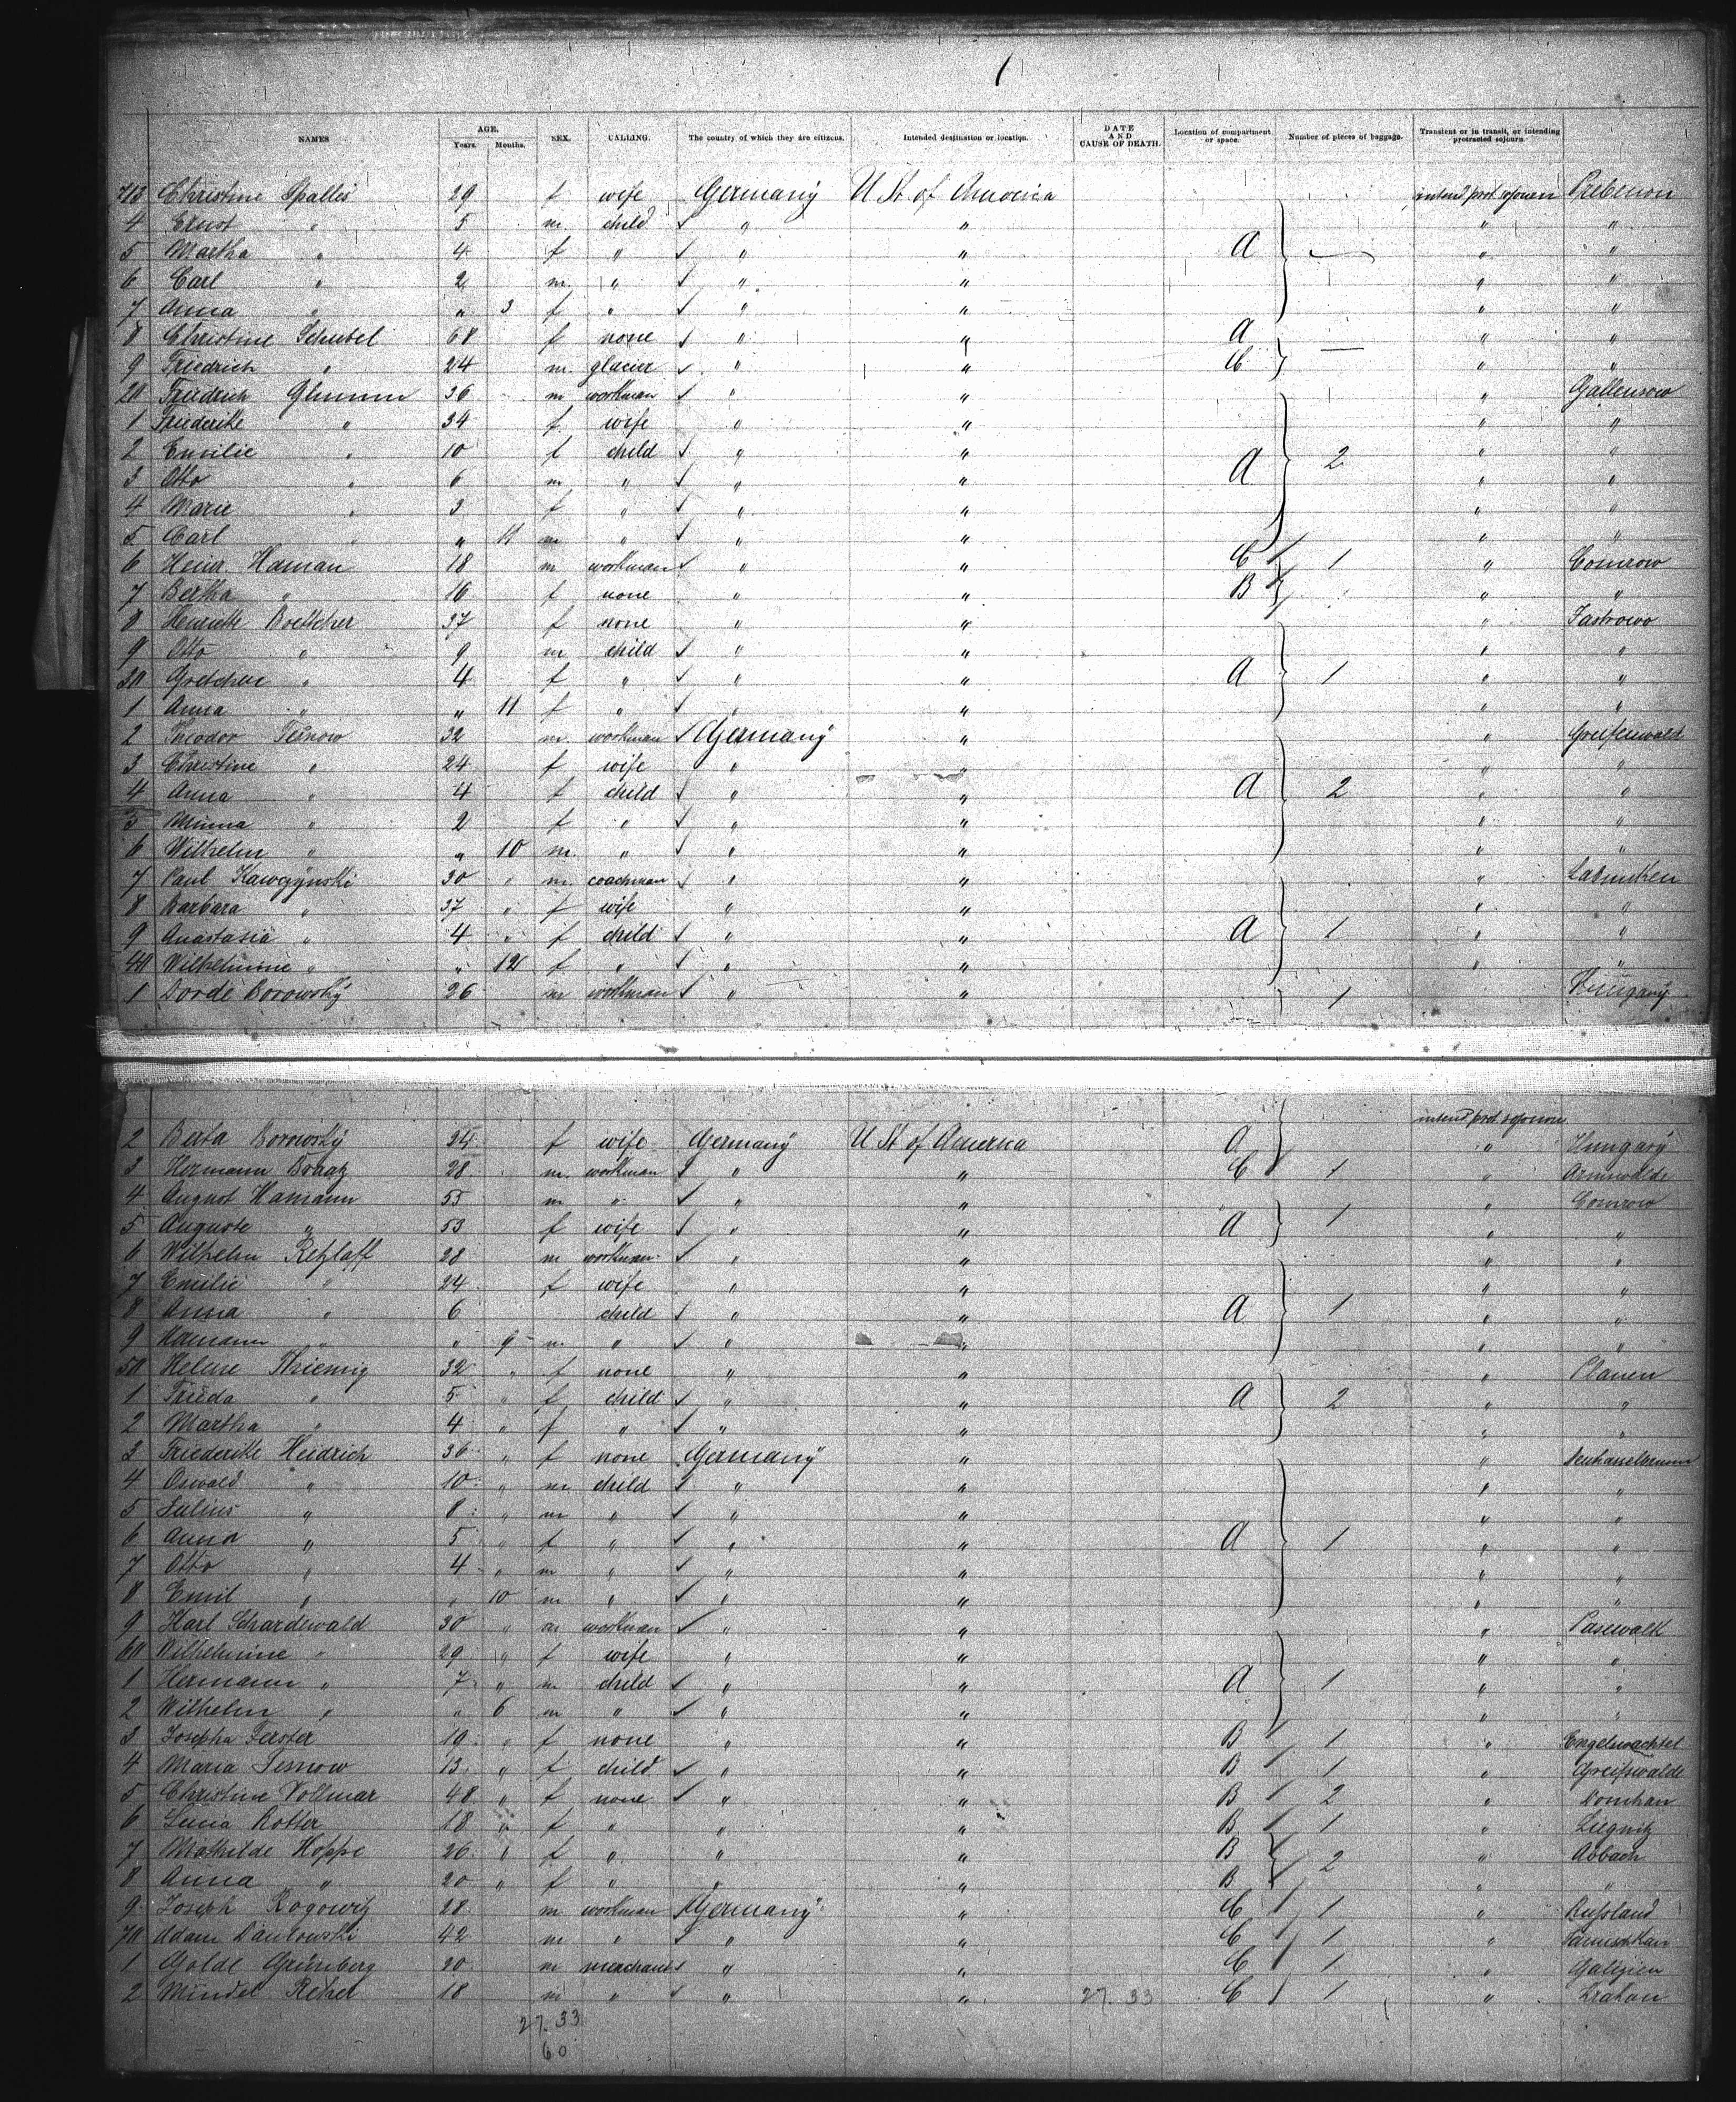 NAMES AGE. Years. Months. SEX. CALLING. The country of which they are citizens. Intended destination or location. DATE AND CAUSE OF DEATH. Location of compartment or space. Number of pieces of baggage. Transient or in transit, or intending protracted sojourn.
713 Christine Spalles 29 f wife Germany U St. of America intend prot sojourn
4 Ernst " 5 m. child " " " "
5 Martha " 4 f " " " A " "
6 Carl " 2 m. " " " " "
7 Anna " " 3 f " " " " "
8 Christine Schubel 68 f none " " A " "
9 Friedrich " 24 m. glacier " " C " "
20 Friedrich Glumm 36 m workman " " " Gallensow
1 Friederike " 34 f wife " " " "
2 Emilie " 10 f child " " A 2 " "
3 Otto " 6 m " " " " "
4 Marie " 3 f " " " " "
5 Carl " " 11 m " " " " "
6 Heinr. Haman 18 m workman " " C 1 " Comrow
7 Bertha " 16 f none " " B " "
8 Henriette Boettcher 37 f none " " " Jastrowo
9 Otto " 9 m child " " " "
30 Gretchen " 4 f " " " A 1 " "
1 Anna " " 11 f " " " " "
2 Theodor Tesnow 32 m. workman Germany " " Greifenwald
3 Christine " 24 f wife " " " "
4 Anna " 4 f child " " A 2 " "
5 Minna " 2 f " " " " "
6 Wilhelm " " 10 m. " " " " "
7 Paul Kawczynski 30 " m. coachman " " " Labuhken
8 Barbara " 37 " f wife " " " "
9 Anastasia " 4 " f child " " A 1 " "
40 Wilhelmine " " 12 f " " " " "
1 Dorde Borowsky 26 m workman " " 1 Hungary
intend prot sojourn
2 Berta Borowsky 24 f wife Germany U St of America A " Hungary
3 Hermann Braatz 28 m. workman " " C 1 " Arnswalde
4 August Hamann 55 m " " " 1 " Comrow
5 Auguste " 53 f wife " " A " "
6 Wilhelm Retzlaff 28 m workman " " " "
7 Emilie " 24 f wife " " " "
8 Anna " 6 child " " A 1 " "
9 Hermann " " 9 m " " " " "
50 Helene Thriemig 32 " f none " " " Plauen
1 Frieda " 5 " f child " " A 2 " "
2 Martha " 4 " f " " " " "
3 Friederike Heidrich 36 " f none Germany " "
4 Oswald " 10 " m child " " " "
5 Julius " 8 " m " " " " "
6 Anna " 5 " f " " " A 1 " "
7 Otto " 4 " m " " " " "
8 Emil " " 10 m " " " " "
9 Karl Schardewald 30 " m workman " " " Pasewalk
60 Wilhelmine " 29 " f wife " " " "
1 Hermann " 7 " m child " " A 1 " "
2 Wilhelm " " 6 m " " " " "
3 Josepha Ferster 19 " f none " " B 1 " Engelwachtel
4 Maria Tesnow 13 " f child " " B 1 " Greifswalde
5 Christine Vollmar 48 " f none " " B 2 " Dornhan
6 Lina Rotter 18 " f " " " B 1 " Liegnitz
7 Mathilde Hoppe 26 " f " " " B 2 " Asbach
8 Anna " 20 " f " " " B " "
9 Joseph Rogowitz 28 m workman Germany " C 1 " Russland
70 Adam Paulowski 42 m " " " C 1 "
1 Golde Grünberg 20 m merchant " " C 1 " Galizien
2 Mindel Reisel 18 m " " " 27. 33 C 1 " Krakau
27. 33
60